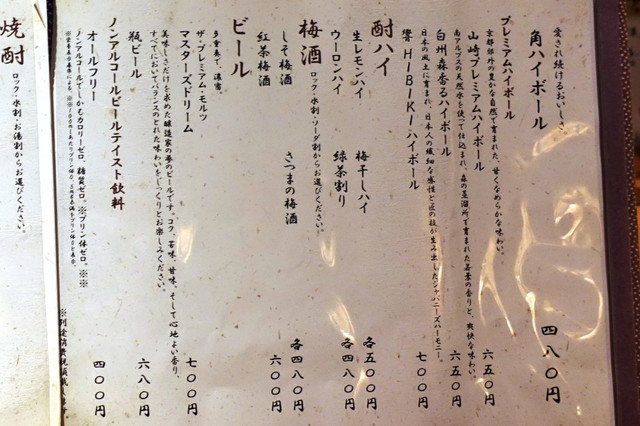 愛され続けるおいしさ。
角ハイボール 四八〇円
プレミアムハイボール
京都郊外の豊かな自然で育まれた、甘くなめらかな味わい。
山崎プレミアムハイボール 六五〇円
南アルプスの天然水を使って仕込まれ、森の蒸溜所で育まれた若葉の香りと、爽快な味わい。
白州森香るハイボール 六五〇円
日本の風土に育まれ、日本人の繊細な感性と匠の技が生み出したジャパニーズハーモニー。
響HIBIKIハイボール 七〇〇円
酎ハイ
生レモンハイ 梅干しハイ 各五〇〇円
ウーロンハイ 緑茶割り 各四八〇円
梅酒 ロック・水割・ソーダ割からお選びください。
しそ梅酒 さつまの梅酒 各四八〇円
紅茶梅酒 六〇〇円
ビール
多重奏で、濃密。
ザ・プレミアム・モルツ
マスターズドリーム 七〇〇円
美味しさだけを求めた醸造家の夢のビールです。コク、苦味、甘味、そして心地よい香り。
すべてにおいてバランスのとれた味わいをじっくりとお楽しみください。
瓶ビール 六八〇円
ノンアルコールビールテイスト飲料
オールフリー 四〇〇円
ノンアルコールでしかもカロリーゼロ、糖質ゼロ。※プリン体ゼロ。※※
※別途消費税頂戴します。
焼酎 ロック・水割・お湯割からお選びください。